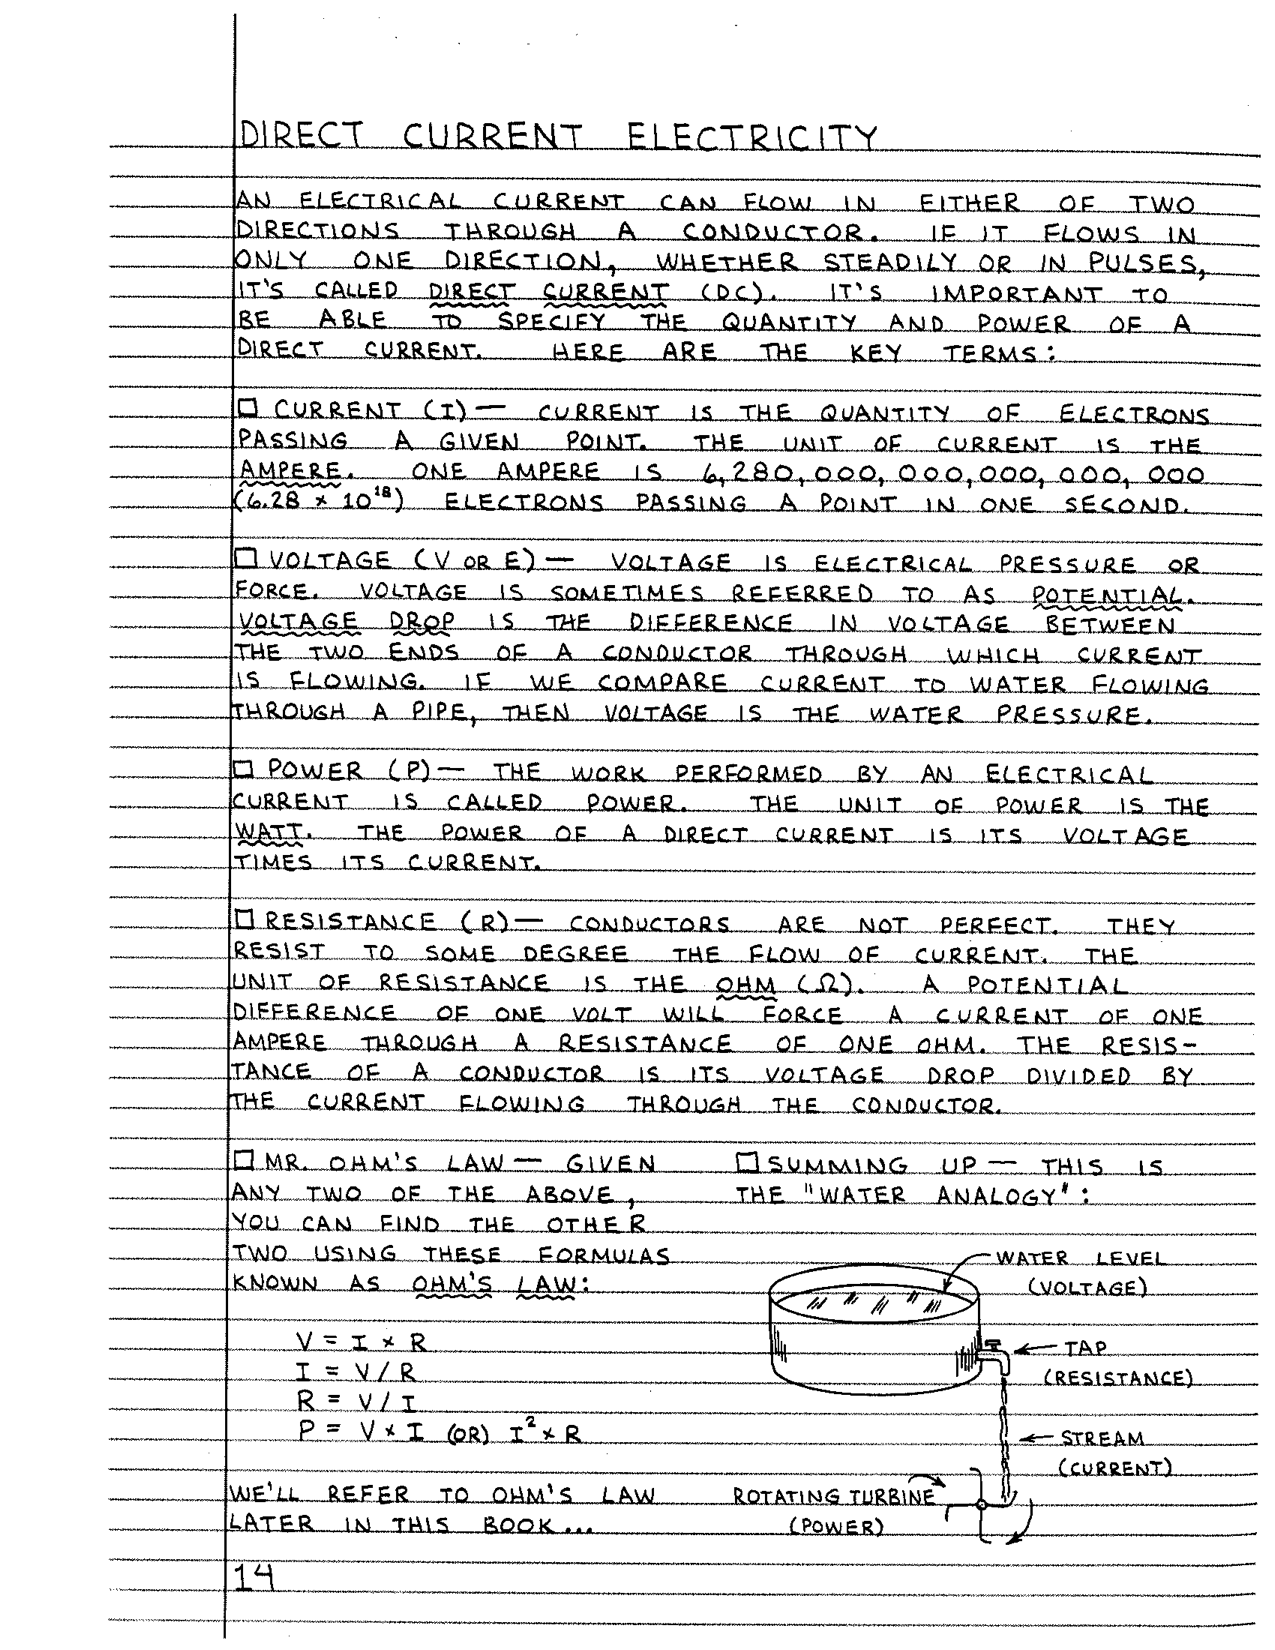 DIRECT CURRENT ELECTRICITY
AN ELECTRICAL CURRENT CAN FLOW IN EITHER OF TWO
DIRECTIONS THROUGH A CONDUCTOR. IF IT FLOWS IN
ONLY ONE DIRECTION, WHETHER STEADILY OR IN PULSES,
IT'S CALLED DIRECT CURRENT (DC). IT'S IMPORTANT TO
BE ABLE TO SPECIFY THE QUANTITY AND POWER OF A
DIRECT CURRENT. HERE ARE THE KEY TERMS:
□ CURRENT (I) — CURRENT IS THE QUANTITY OF ELECTRONS
PASSING A GIVEN POINT. THE UNIT OF CURRENT IS THE
AMPERE. ONE AMPERE IS 6,280,000,000,000,000,000
(6.28 × 10¹⁸) ELECTRONS PASSING A POINT IN ONE SECOND.
□ VOLTAGE (V OR E) — VOLTAGE IS ELECTRICAL PRESSURE OR
FORCE. VOLTAGE IS SOMETIMES REFERRED TO AS POTENTIAL.
VOLTAGE DROP IS THE DIFFERENCE IN VOLTAGE BETWEEN
THE TWO ENDS OF A CONDUCTOR THROUGH WHICH CURRENT
IS FLOWING. IF WE COMPARE CURRENT TO WATER FLOWING
THROUGH A PIPE, THEN VOLTAGE IS THE WATER PRESSURE.
□ POWER (P) — THE WORK PERFORMED BY AN ELECTRICAL
CURRENT IS CALLED POWER. THE UNIT OF POWER IS THE
WATT. THE POWER OF A DIRECT CURRENT IS ITS VOLTAGE
TIMES ITS CURRENT.
□ RESISTANCE (R) — CONDUCTORS ARE NOT PERFECT. THEY
RESIST TO SOME DEGREE THE FLOW OF CURRENT. THE
UNIT OF RESISTANCE IS THE OHM (Ω). A POTENTIAL
DIFFERENCE OF ONE VOLT WILL FORCE A CURRENT OF ONE
AMPERE THROUGH A RESISTANCE OF ONE OHM. THE RESIS-
TANCE OF A CONDUCTOR IS ITS VOLTAGE DROP DIVIDED BY
THE CURRENT FLOWING THROUGH THE CONDUCTOR.
□ MR. OHM'S LAW — GIVEN
ANY TWO OF THE ABOVE,
YOU CAN FIND THE OTHER
TWO USING THESE FORMULAS
KNOWN AS OHM'S LAW:
V = I × R
I = V / R
R = V / I
P = V × I (OR) I² × R
WE'LL REFER TO OHM'S LAW
LATER IN THIS BOOK...
□ SUMMING UP — THIS IS
THE "WATER ANALOGY":
WATER LEVEL
(VOLTAGE)
TAP
(RESISTANCE)
STREAM
(CURRENT)
ROTATING TURBINE
(POWER)
14